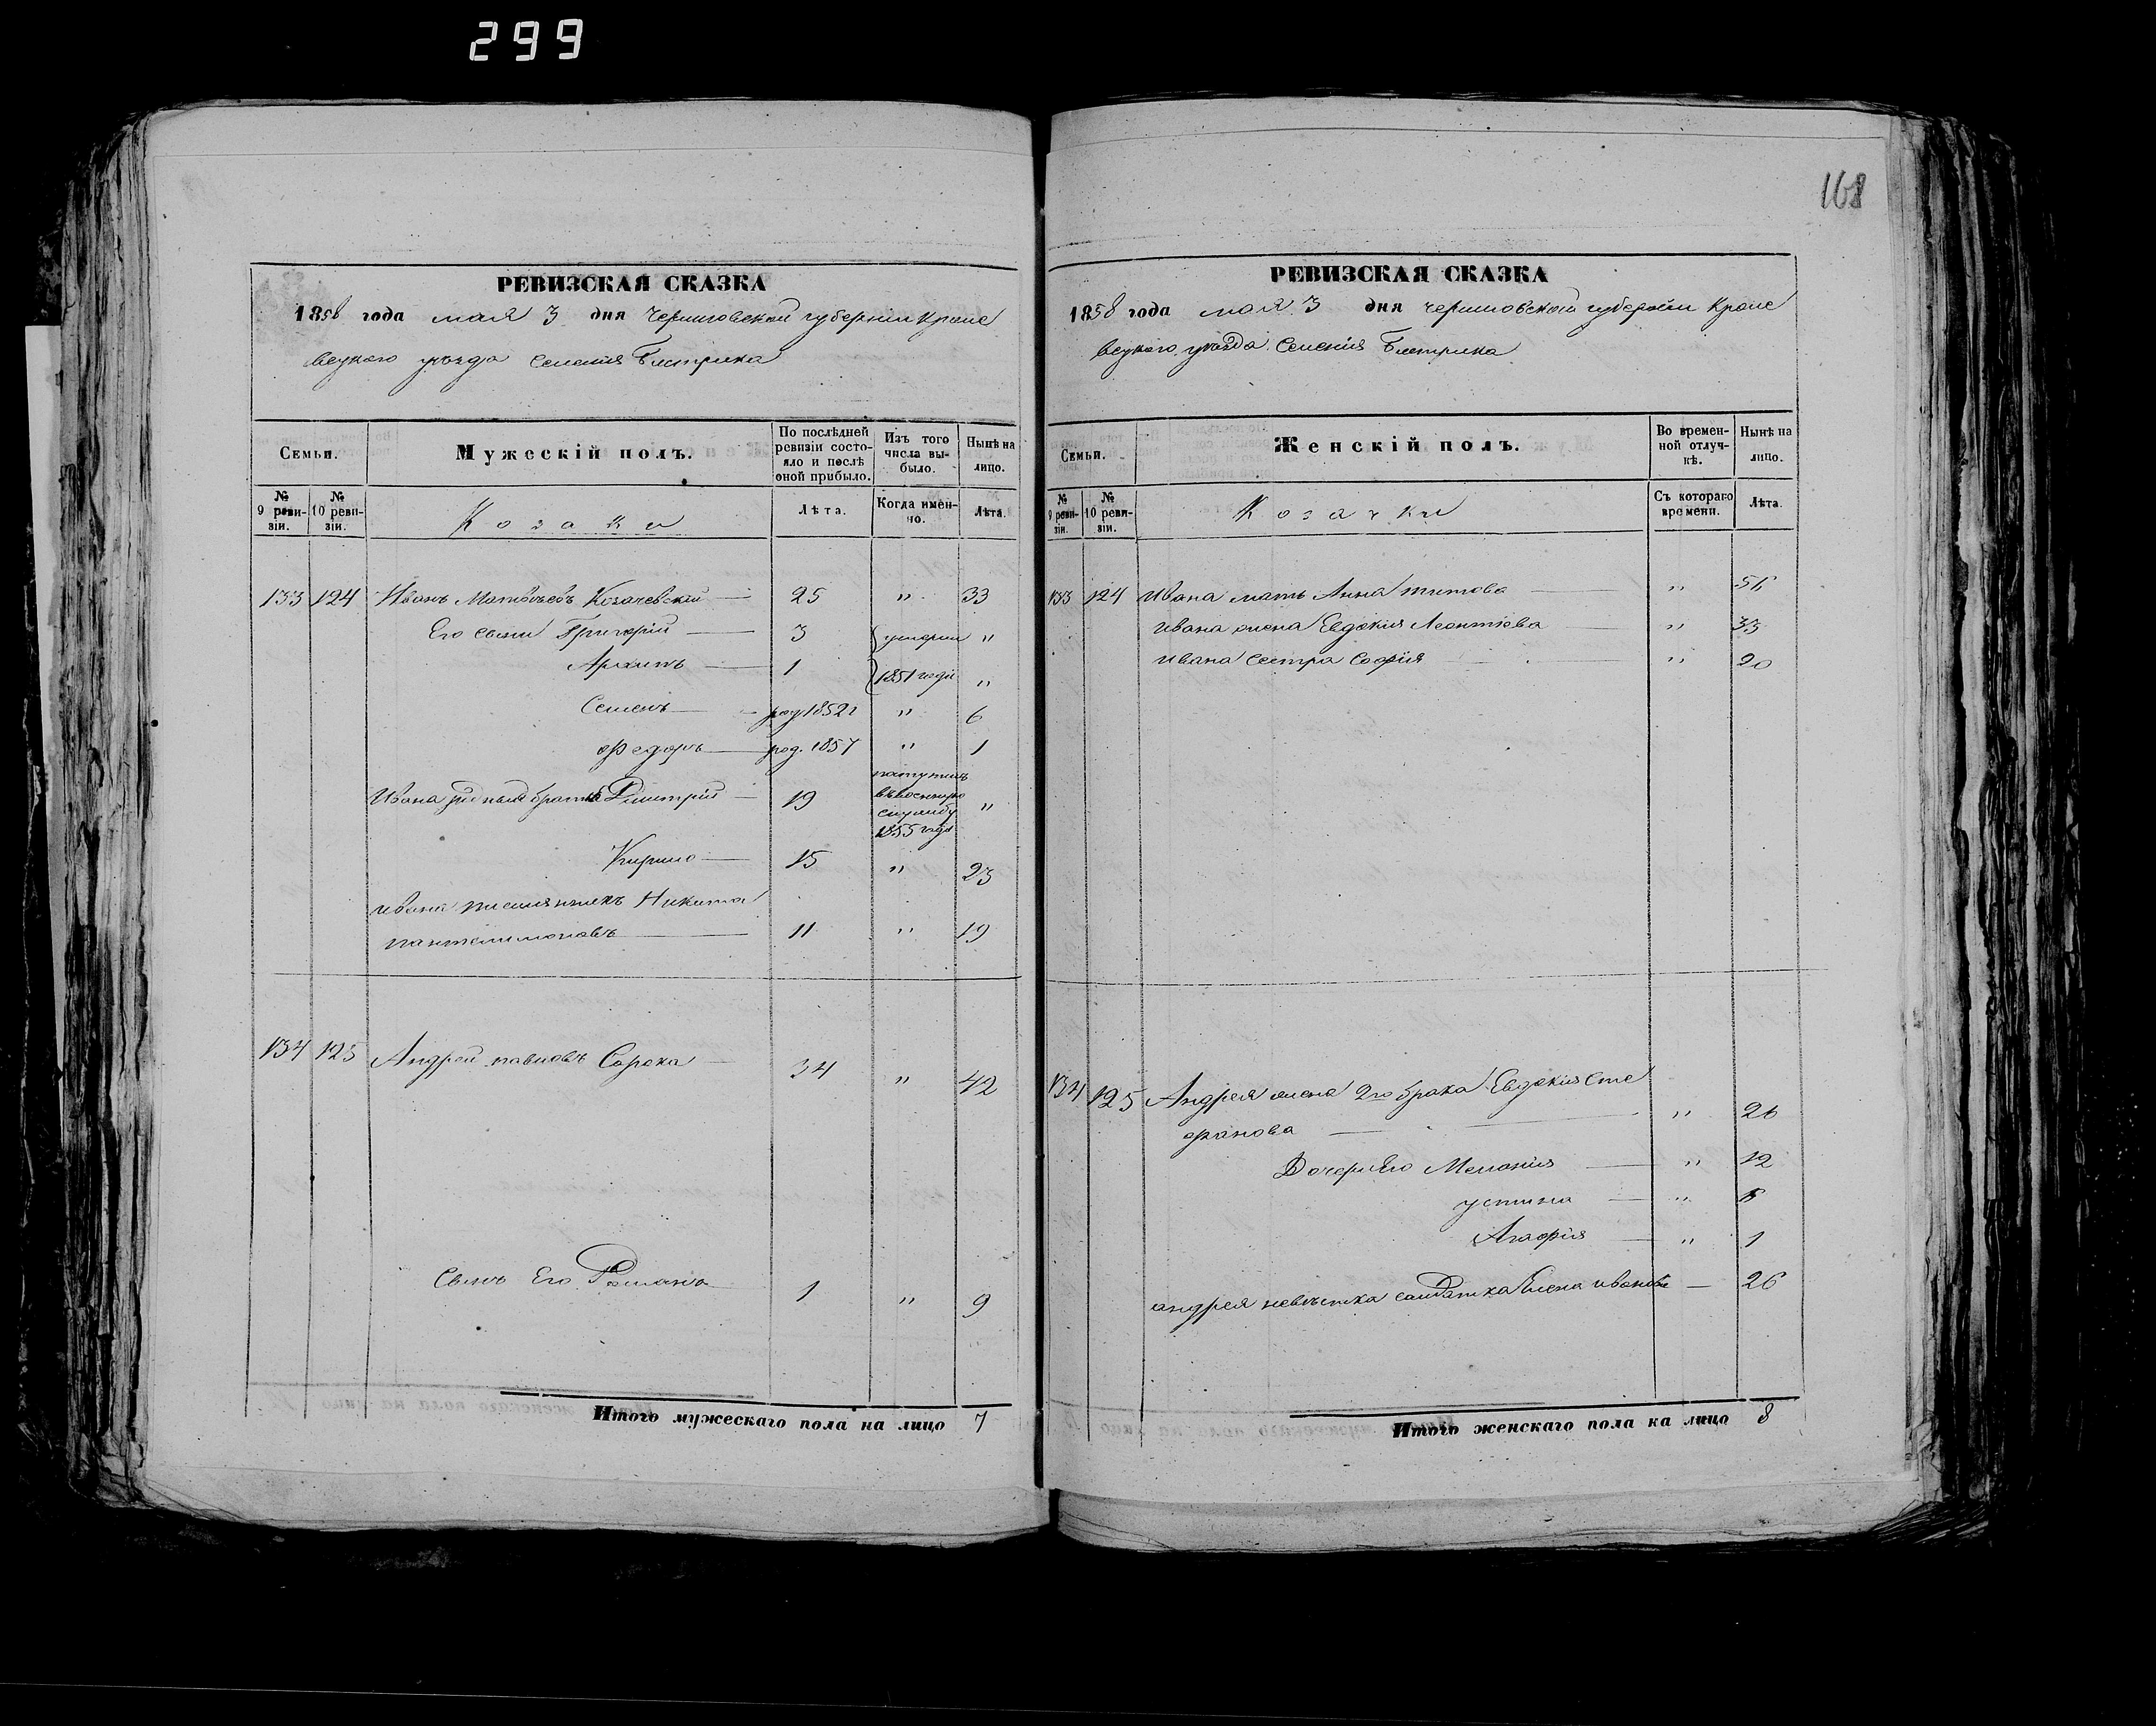 299
168
РЕВИЗСКАЯ СКАЗКА
1858 года мая 3 дня Черниговской губернии Кроле
вецкого уѣзда селенія Быстрика
Семьи.
Мужескій полъ.
По послѣдней ревизіи состояло и послѣ оной прибыло.
Изъ того числа выбыло.
Нынѣ на лицо.
№ 9 ревизіи.
№ 10 ревизіи.
Козаки
Лѣта.
Когда именно.
Лѣта.
133 124 Иванъ Матвѣевъ Козачевскій 25 " 33
Его сыни Григорій 3 умерли "
Архипъ 1 1851 года "
Семенъ род. 1852 г " 6
Федоръ род. 1857 " 1
Ивана родные братья Дмитрій 19 поступилъ въ военную службу 1855 года "
Кирило 15 " 23
Ивана племянникъ Никита
Пантелимоновъ 11 " 19
134 125 Андрей Павловъ Сорока 34 " 42
Сынъ Его Романъ 1 " 9
Итого мужескаго пола на лицо 7
РЕВИЗСКАЯ СКАЗКА
1858 года мая 3 дня Черниговской губерніи Кроле
вецкого уѣзда селенія Быстрика
Семьи.
Женскій полъ.
Во временной отлучкѣ.
Нынѣ на лицо.
№ 9 ревизіи.
№ 10 ревизіи.
Козачки
Съ котораго времени.
Лѣта.
133 124 Ивана мать Анна Титова "
Ивана жена Евдокия Леонтіева " 33
Ивана сестра Софія " 20
134 125 Андрея жена 2го брака Евдокия Сте
фанова " 26
Дочери Его Меланія " 12
Устина "
Агафія " 1
Андрея невѣстка солдатка Елена Иванова 26
Итого женскаго пола на лицо 8